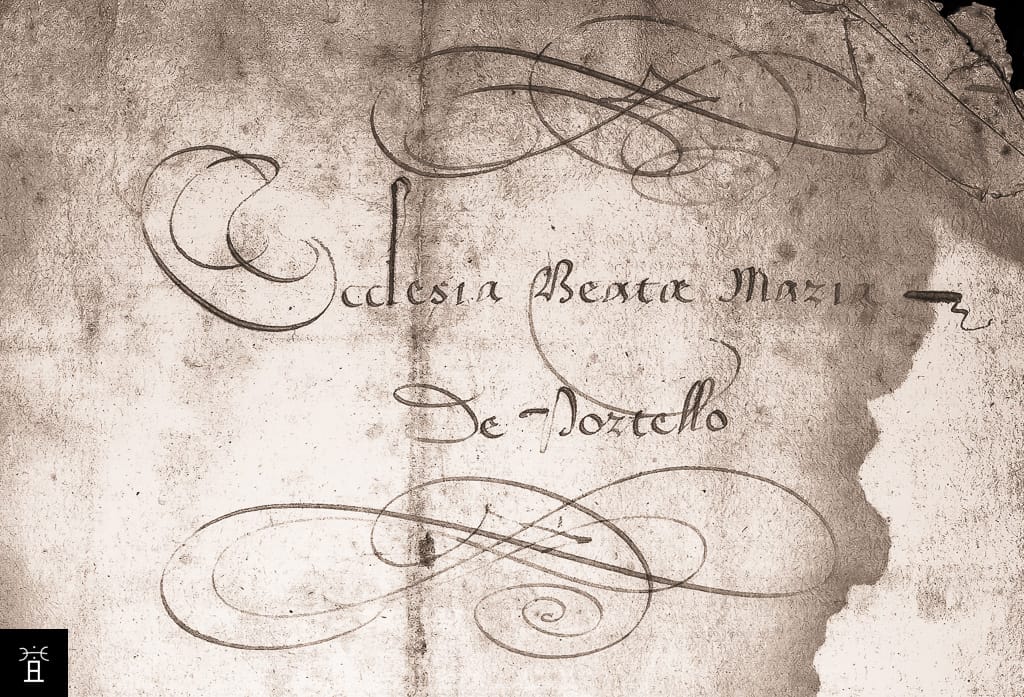 Ecclesia Beatæ Maria
De Portello